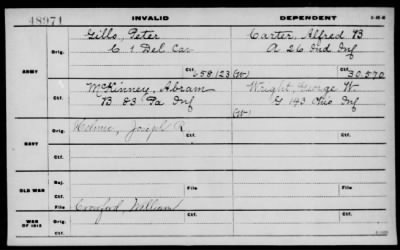 48971
INVALID
DEPENDENT
Gillo, Peter
Carter, Alfred B
Orig.
C 1 Del. Cav
Orig.
A 26 Ind Inf
ARMY
Ctf.
58123 (W)
Ctf.
30.570
McKinney, Abram
Wright, George W.
Ctf.
B 83 Pa Inf
Ctf.
G 143 Ohio Inf
(W)
Orig.
Holmes, Joseph R
Orig.
NAVY
Ctf.
Ctf.
OLD WAR
Rej.
Ctf.
File
File
WAR OF 1812
Orig.
Crawford, William
Ctf.
Ctf.
File